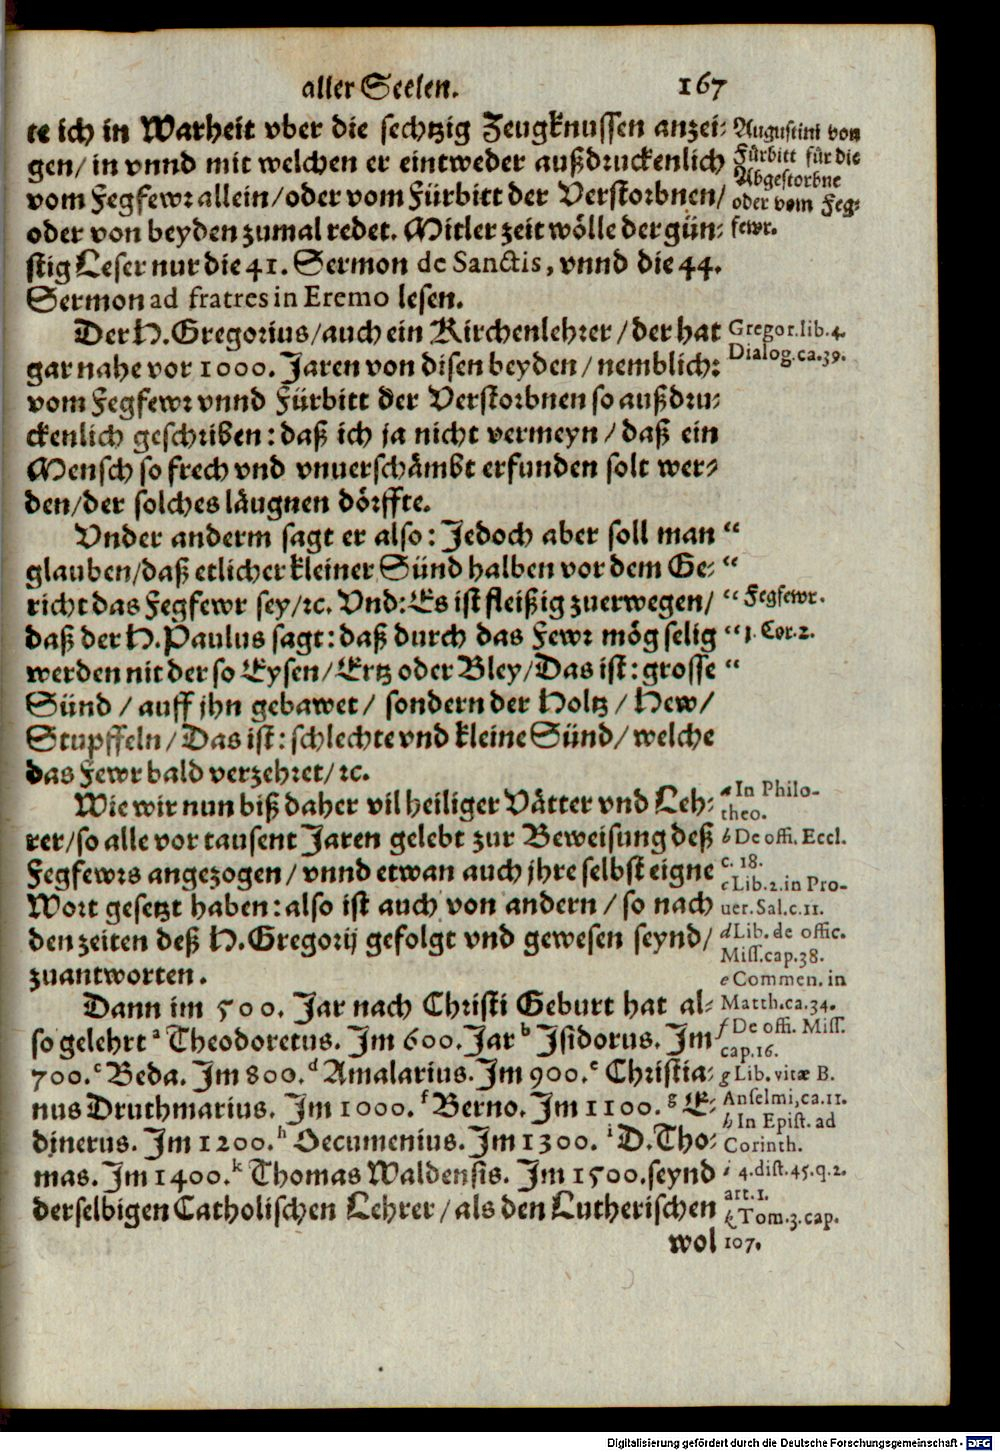 aller Seelen. 167
te ich in Warheit vber die sechtzig Zeugknussen anzei-
gen/ in vnnd mit welchen er eintweder außdruckenlich
vom Fegfewr allein/ oder vom Fürbitt der Verstorbnen/
oder von beyden zumal redet. Mitler zeit wölle der gün-
stig Leser nur die 41. Sermon de Sanctis, vnnd die 44.
Sermon ad fratres in Eremo lesen.
Augustini von
Fürbitt für die
Abgestorbne
oder vom Feg-
fewr.
Der H. Gregorius/ auch ein Kirchenlehrer/ der hat
gar nahe vor 1000. Jaren von disen beyden/ nemblich:
vom Fegfewr vnnd Fürbitt der Verstorbnen so außdru-
ckenlich geschriben: daß ich ja nicht vermeyn/ daß ein
Mensch so frech vnd vnuerschämbt erfunden solt wer-
den/ der solches läugnen dörffte.
Gregor. lib. 4.
Dialog. ca. 39.
Vnder anderm sagt er also: Jedoch aber soll man “
glauben/ daß etlicher kleiner Sünd halben vor dem Ge- “
richt das Fegfewr sey/ ꝛc. Vnd: Es ist fleißig zuerwegen/ “
daß der H. Paulus sagt: daß durch das Fewr mög selig “
werden nit der so Eysen/ Ertz oder Bley/ Das ist: grosse “
Sünd / auff jhn gebawet/ sondern der Holtz / Hew/
Stupffeln/ Das ist: schlechte vnd kleine Sünd/ welche
das Fewr bald verzehret/ ꝛc.
Fegfewr.
1. Cor. 2.
Wie wir nun biß daher vil heiliger Vätter vnd Leh-
rer/ so alle vor tausent Jaren gelebt zur Beweisung deß
Fegfewrs angezogen/ vnnd etwan auch jhre selbst eigne
Wort gesetzt haben: also ist auch von andern/ so nach
den zeiten deß H. Gregorij gefolgt vnd gewesen seynd/
zuantworten.
Dann im 500. Jar nach Christi Geburt hat al-
so gelehrt ᵃ Theodoretus. Im 600. Jar ᵇ Isidorus. Im
700. ᶜ Beda. Im 800. ᵈ Amalarius. Im 900. ᵉ Christia-
nus Druthmarius. Im 1000. ᶠ Berno. Im 1100. ᵍ E-
dinerus. Im 1200. ʰ Oecumenius. Im 1300. ⁱ D. Tho-
mas. Im 1400. ᵏ Thomas Waldensis. Im 1500. seynd
derselbigen Catholischen Lehrer/ als den Lutherischen
wol
a In Philo-
theo.
b De offi. Eccl.
c. 18.
c Lib. 2. in Pro-
uer. Sal. c. 11.
d Lib. de offic.
Miss. cap. 38.
e Commen. in
Matth. ca. 34.
f De offi. Miss.
cap. 16.
g Lib. vitæ B.
Anselmi, ca. 11.
h In Epist. ad
Corinth.
i 4. dist. 45. q. 2.
art. 1.
k Tom. 3. cap.
107.
Digitalisierung gefördert durch die Deutsche Forschungsgemeinschaft - DFG